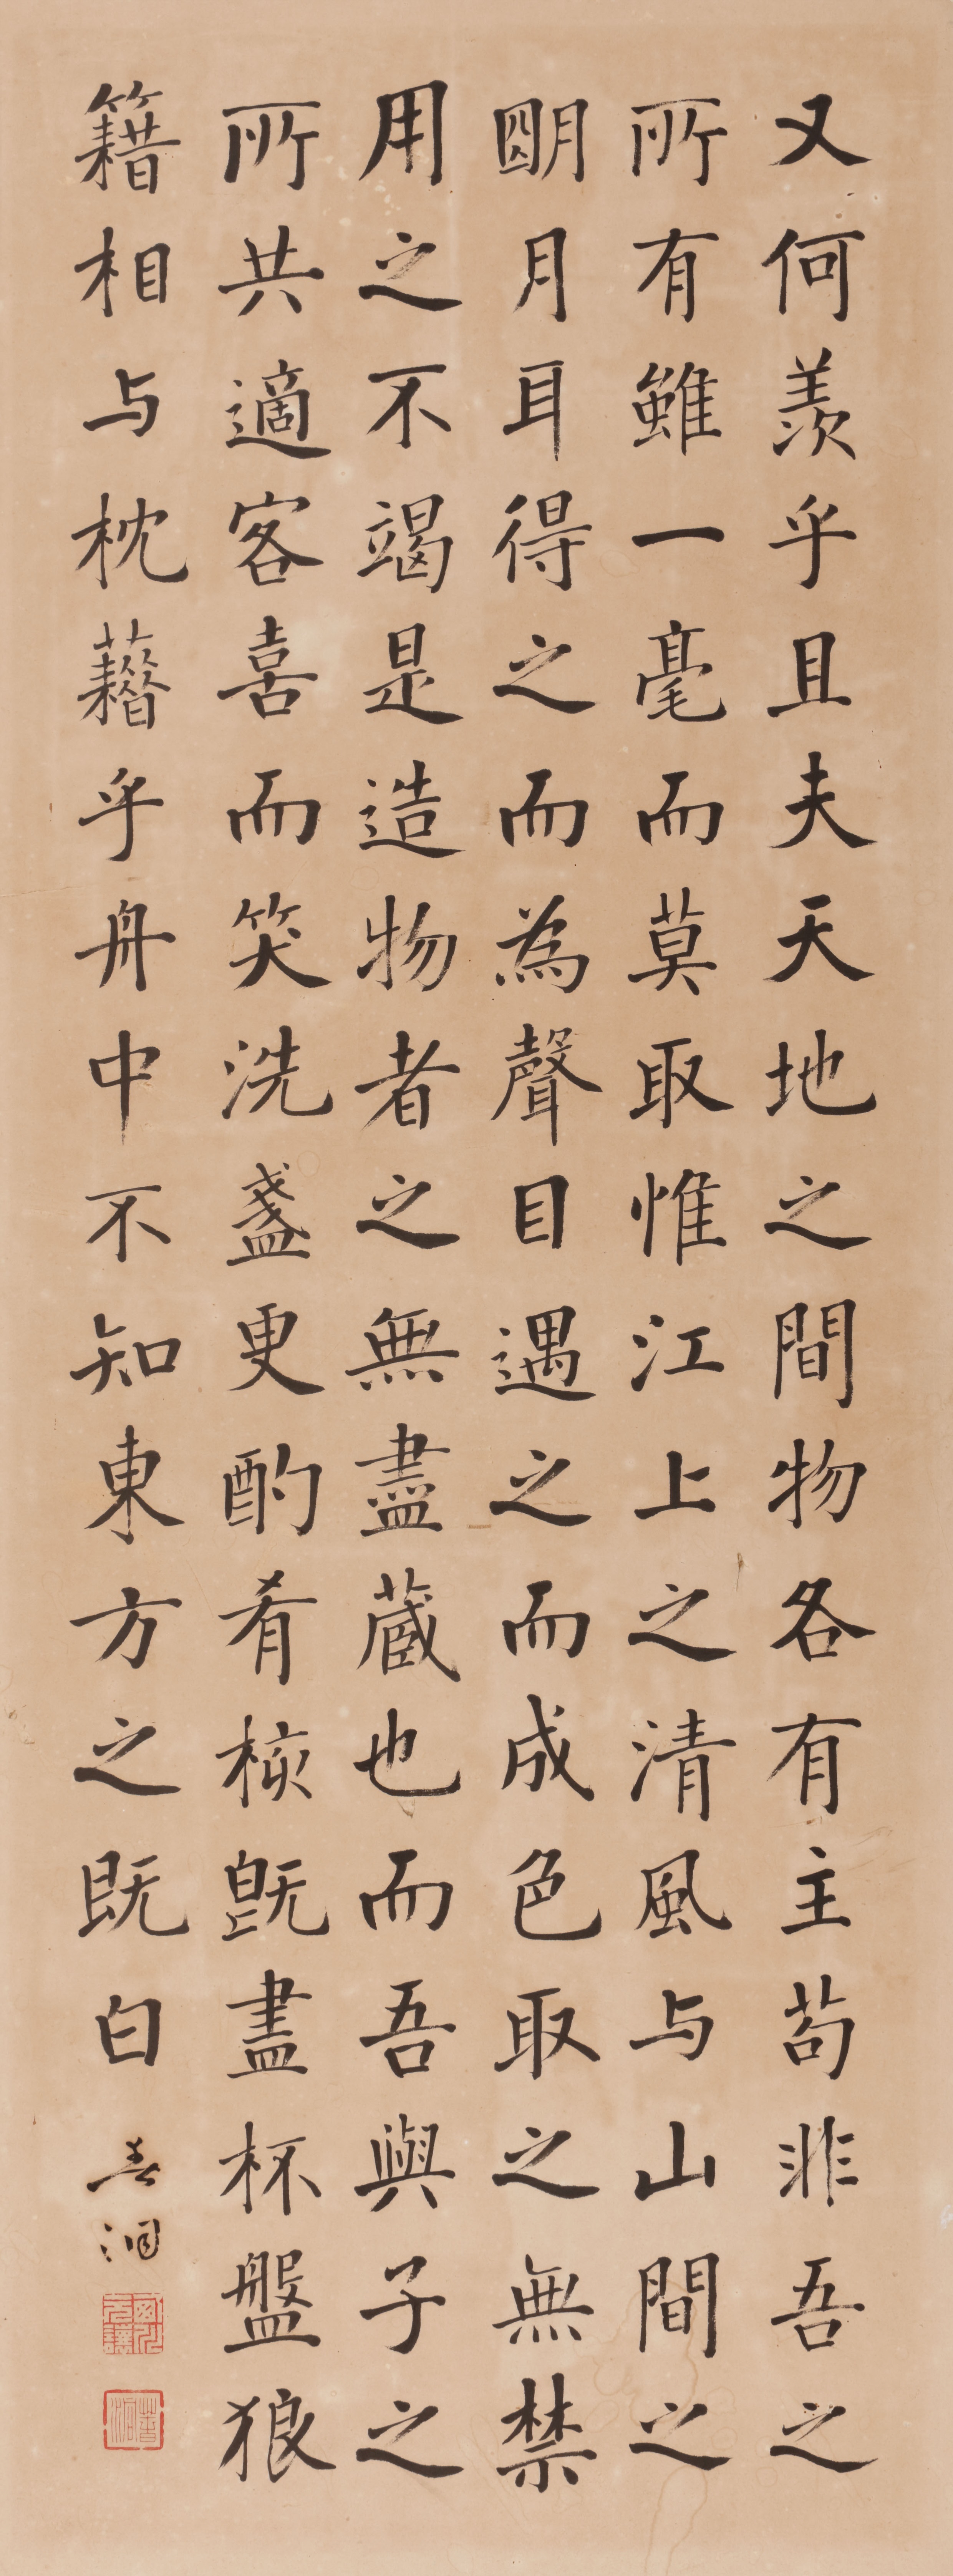 又何羨乎且夫天地之間物各有主苟非吾之
所有雖一毫而莫取惟江上之清風与山間之
朙月耳得之而為聲目遇之而成色取之無禁
用之不竭是造物者之無盡蔵也而吾與子之
所共適客喜而笑洗盞更酌肴核既盡杯盤狼
籍相与枕藉乎舟中不知東方之既白
春洞